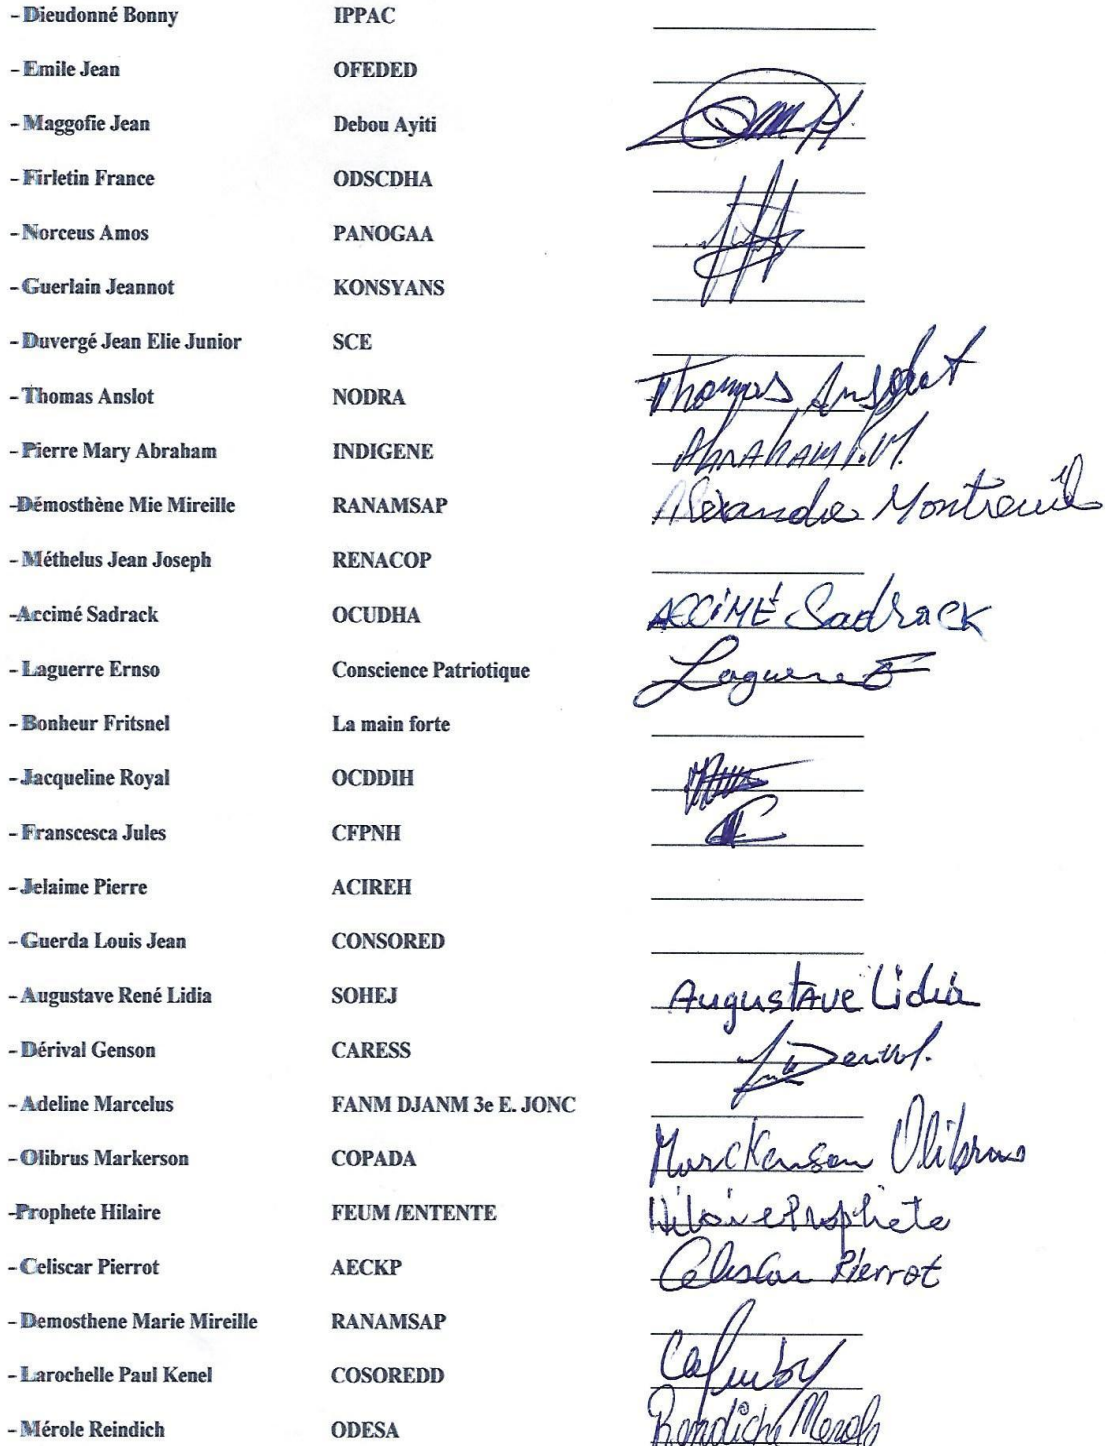 - Dieudonné Bonny IPPAC
- Emile Jean OFEDED
- Maggofie Jean Debou Ayiti
- Firletin France ODSCDHA
- Norceus Amos PANOGAA
- Guerlain Jeannot KONSYANS
- Duvergé Jean Elie Junior SCE
- Thomas Anslot NODRA Thomas Anslot
- Pierre Mary Abraham INDIGENE Abraham P.M.
-Démosthène Mie Mireille RANAMSAP Alexandre Montreuil
- Méthelus Jean Joseph RENACOP
-Accimé Sadrack OCUDHA ACCIMÉ Sadrack
- Laguerre Ernso Conscience Patriotique Laguerre E
- Bonheur Fritsnel La main forte
- Jacqueline Royal OCDDIH
- Franscesca Jules CFPNH
- Jelaime Pierre ACIREH
- Guerda Louis Jean CONSORED
- Augustave René Lidia SOHEJ Augustave Lidia
- Dérival Genson CARESS
- Adeline Marcelus FANM DJANM 3e E. JONC
- Olibrus Markerson COPADA Marckenson Olibrus
-Prophete Hilaire FEUM /ENTENTE Hilaire Prophete
- Celiscar Pierrot AECKP Celiscar Pierrot
- Demosthene Marie Mireille RANAMSAP
- Larochelle Paul Kenel COSOREDD
- Mérole Reindich ODESA